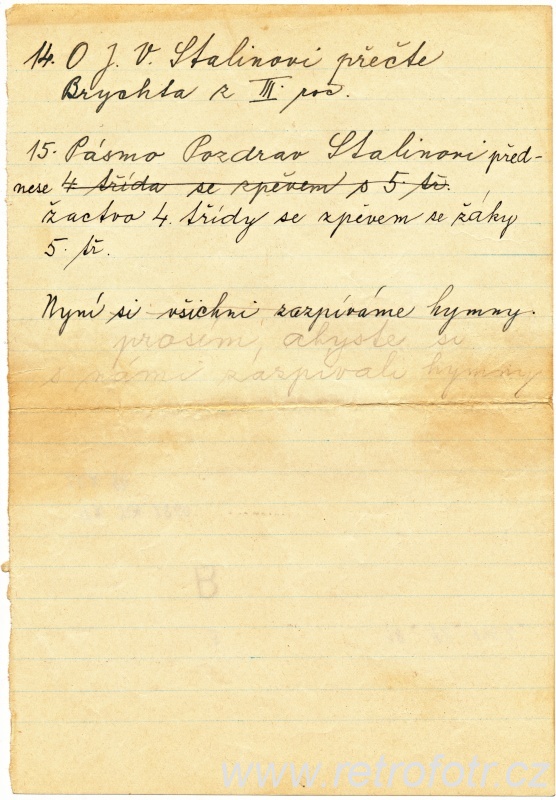 14. O J. V. Stalinovi přečte
Brychta z III. roč.
15. Pásmo Pozdrav Stalinovi před-
nese 4 třída se zpěvem s 5. tř.
žactvo 4. třídy se zpěvem se žáky
5. tř.
Nyní si všichni zazpíváme hymny.
prosím, abyste si
s námi zazpívali hymny
B
www.retrofotr.cz